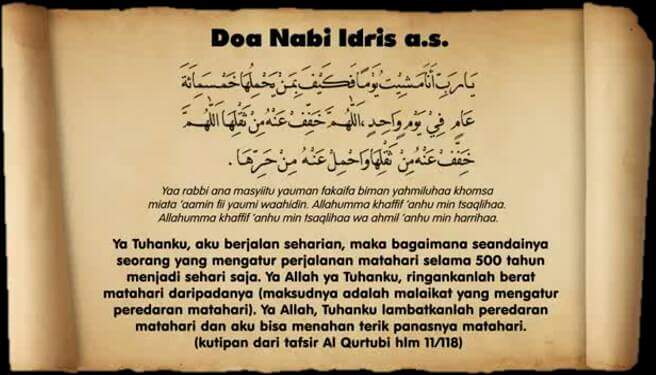 Doa Nabi Idris a.s.
يَا رَبِّ أَنَا مَشِيتُ يَوْمًا فَكَيْفَ بِمَنْ يَحْمِلُهَا خَمْسَمِائَةِ
عَامٍ فِي يَوْمٍ وَاحِدٍ، اَللّٰهُمَّ خَفِّفْ عَنْهُ مِنْ ثَقْلِهَا اَللّٰهُمَّ
خَفِّفْ عَنْهُ مِنْ ثَقْلِهَا وَاحْمِلْ عَنْهُ مِنْ حَرِّهَا .
Yaa rabbi ana masyiitu yauman fakaifa biman yahmiluhaa khomsa
miata 'aamin fii yaumi waahidin. Allahumma khaffif 'anhu min tsaqlihaa.
Allahumma khaffif 'anhu min tsaqlihaa wa ahmil 'anhu min harrihaa.
Ya Tuhanku, aku berjalan seharian, maka bagaimana seandainya
seorang yang mengatur perjalanan matahari selama 500 tahun
menjadi sehari saja. Ya Allah ya Tuhanku, ringankanlah berat
matahari daripadanya (maksudnya adalah malaikat yang mengatur
peredaran matahari). Ya Allah, Tuhanku lambatkanlah peredaran
matahari dan aku bisa menahan terik panasnya matahari.
(kutipan dari tafsir Al Qurtubi hlm 11/118)